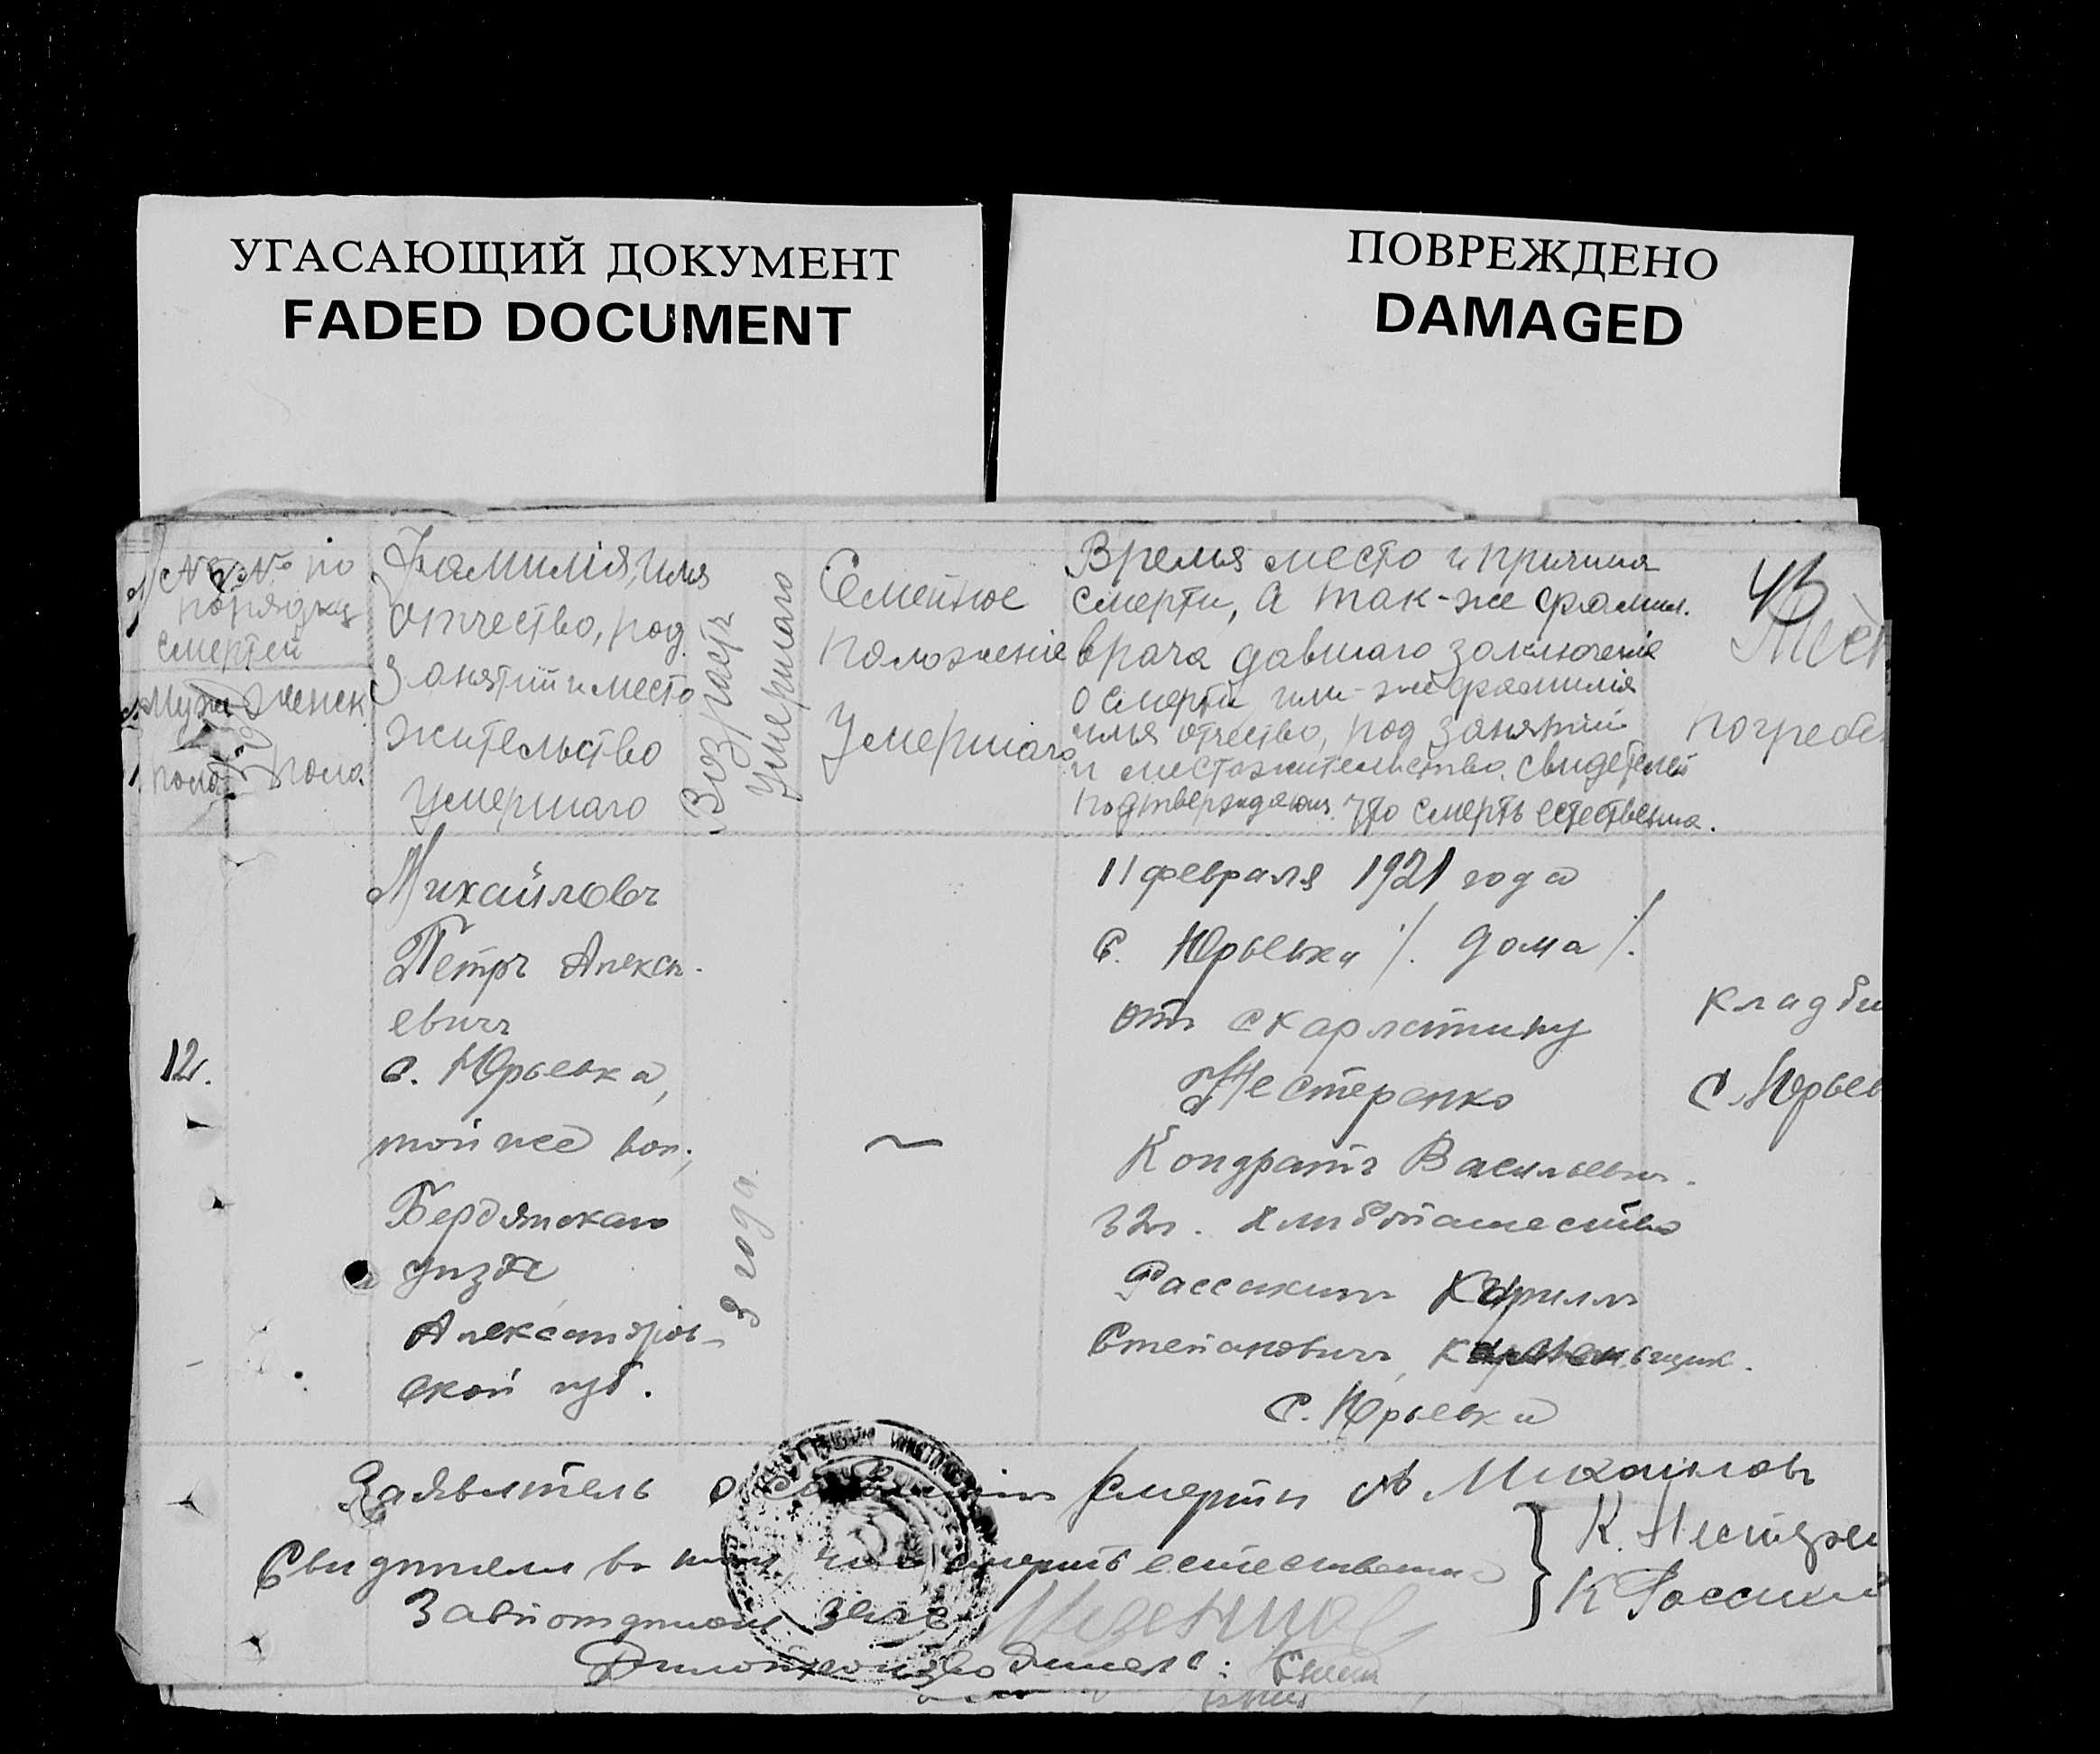 УГАСАЮЩИЙ ДОКУМЕНТ
FADED DOCUMENT
ПОВРЕЖДЕНО
DAMAGED
№ № по
порядку
смертей
Муж
пола
Женск
пола
Фамилія, имя
отчество, род
занятій и место
жительство
умершаго
Возрастъ
умершаго
Семейное
положеніе
умершаго
Время место и причина
смерти, а так-же фамил.
врача давшаго заключеніе
о смерти или-же фамилія
имя отчество, род занятій
и местожительство свидетелей
подтверждающ. что смерть естественна.
45
погребе
12.
Михайловъ
Петръ Алексѣ-
евичъ
с. Юрьевка,
той же вол.,
Бердянскаго
уѣзда
Александров-
ской губ.
3 года
~
11 февраля 1921 года
с. Юрьевки /. дома /.
отъ скарлатины
Нестеренко
Кондратъ Васильевич.
32л. хлѣбопашество
Рассихин Кирилл
Степановичъ,
с. Юрьевка
кладби
с. Юрьев
Заявитель о смерти А Михайловъ
Свидѣтели въ том, что смерть естественна
К. Нестерен
К Рассихин
Завѣотдѣлом загс
Дѣлопроизводитель: